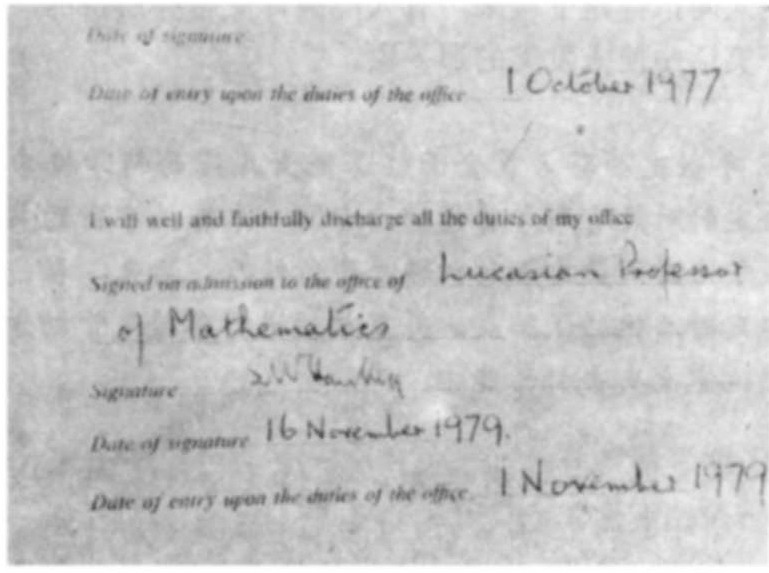 Date of signature
Date of entry upon the duties of the office 1 October 1977
I will well and faithfully discharge all the duties of my office
Signed on admission to the office of Lucasian Professor
of Mathematics
Signature SW Hawking
Date of signature 16 November 1979.
Date of entry upon the duties of the office. 1 November 1979